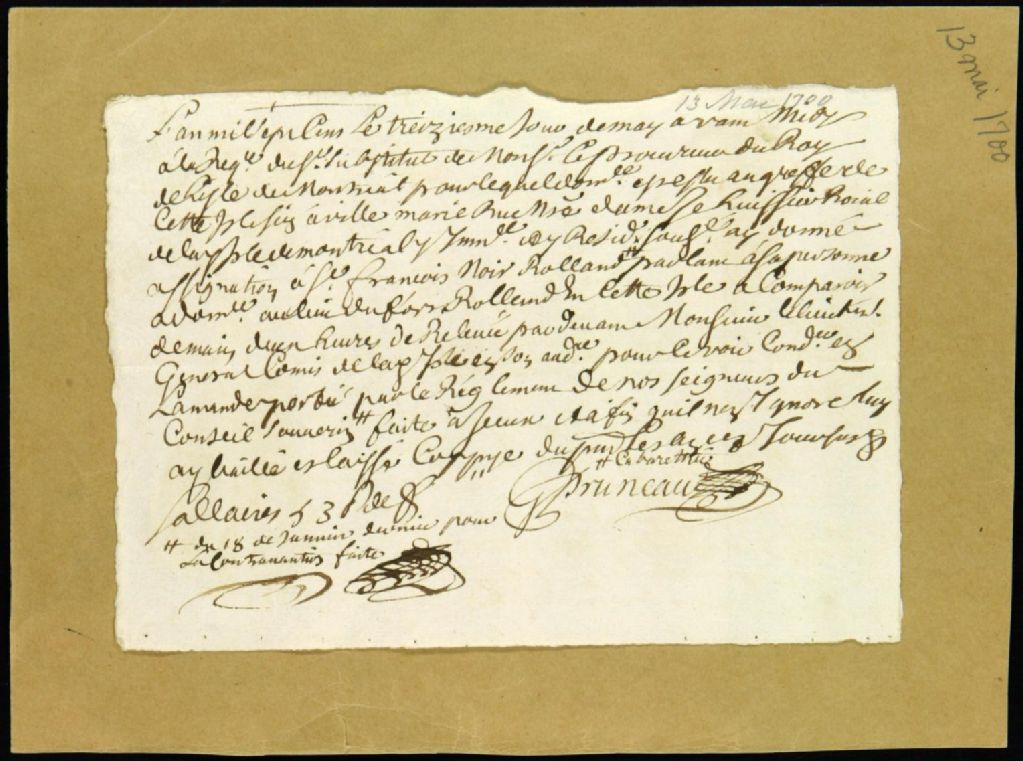 13 mai 1700
13 Mai 1700
L'an mil sept Cens Le treiziesme Jour de may avant Midy
à la Reqte du Sr Substitut de Monsr Le procureur du Roy
de L'isle de Montreal pour lequel domle est esleu au greffe de
Cette Isle sis à ville marie Rue Nre dame Je huissier Roial
de lad Isle de montreal y Immle y Residt soubsé ay donné
assignation à Sr francois Noir Rolland # parlant à sa personne
a domle au lieu du fort Rolland En Cette Isle a Comparoir
demain deux heures de Relevée pardevant Monsieur le Lieutent
General Comis de lad Isle en son audce pour le voir Condner en
Lamande portée par le Reglement de nos seigneurs du
Conseil souverin # faite à Iceux et afin quil nen Ignore Luy
ay baillé et laissé Coppye du pnt Les an et Jour susd
# Cabaretier
Pruneau
sallaires 3
# du 18 de Janvier dernier pour
La Contravantion faite